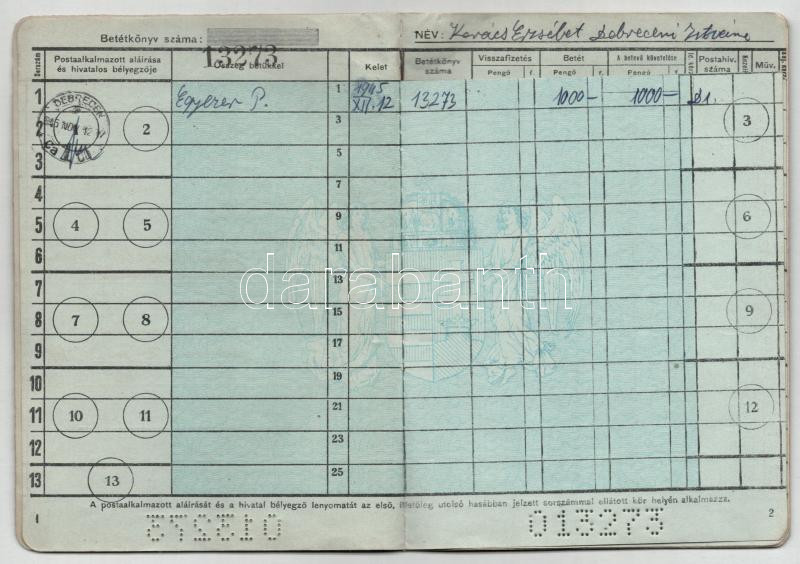 Betétkönyv száma:
13273
NÉV: Kovács Erzsébet Debreceni Istvánné
Sorszám
Postaalkalmazott aláírása és hivatalos bélyegzője
Összeg betűkkel
Kelet
Betétkönyv száma
Visszafizetés
Pengő f.
Betét
Pengő f.
A betevő követelése
Pengő f.
Postahiv. száma
Műv.
1 Egyezer P. 1 1945 XII. 12 13273 1000- 1000-
DEBRECEN
2 2 3 3
3 5
4 7
5 4 5 9 6
6 11
7 13
8 7 8 15 9
9 17
10 19
11 10 11 21 12
12 23
13 13 25
A postaalkalmazott aláírását és a hivatal bélyegző lenyomatát az első, illetőleg utolsó hasábban jelzett sorszámmal ellátott kör helyén alkalmazza.
1 2
013273 013273
darabanth